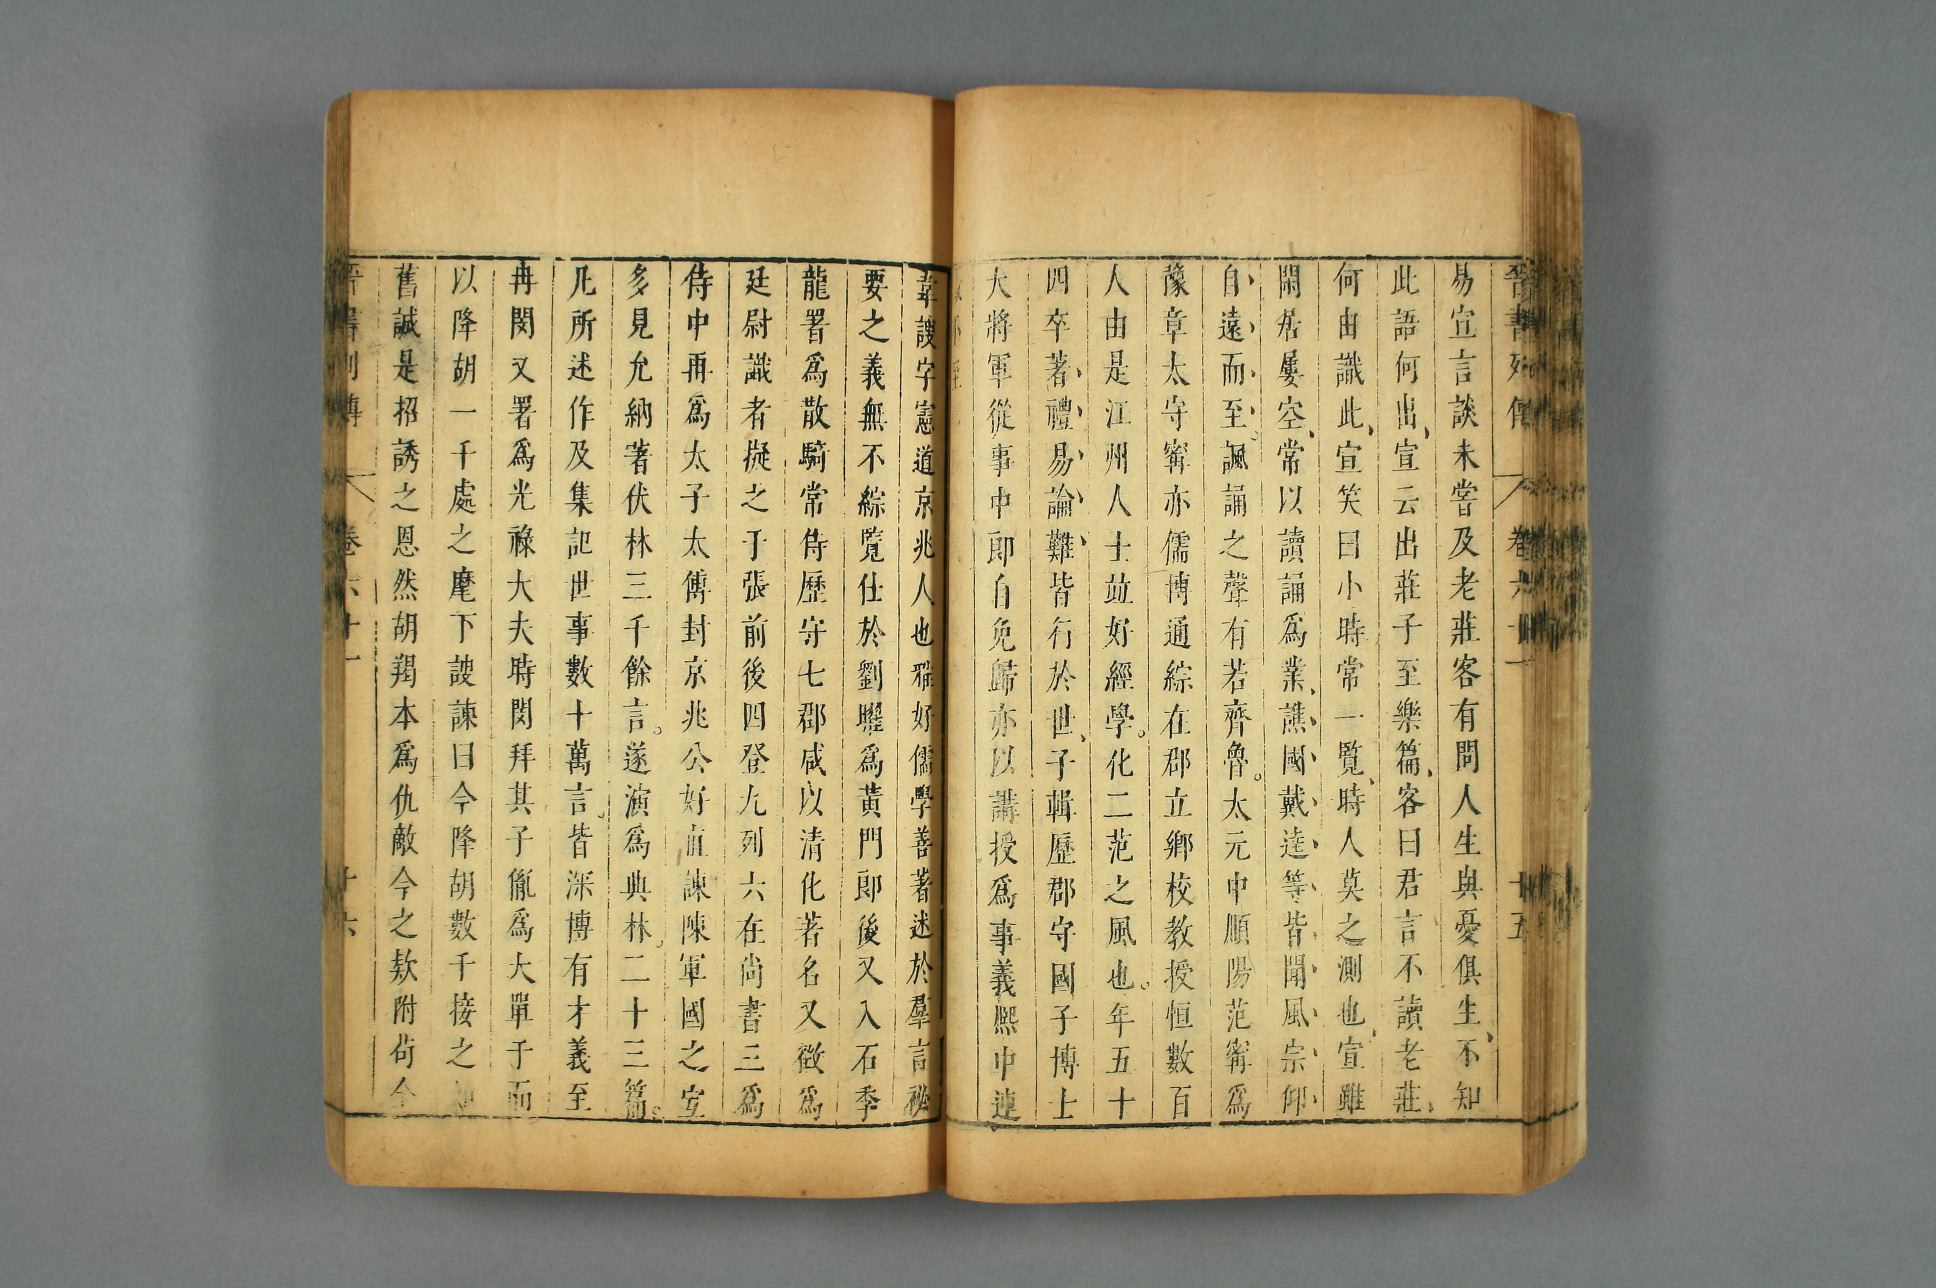 晉書列傳 卷六十一 十五
易宣言談未嘗及老莊客有問人生與憂俱生、不知
此語何出、宣云出莊子至樂篇、客曰君言不讀老莊、
何由識此、宣笑曰小時常一覽、時人莫之測也、宣雖
閑居屢空、常以讀誦爲業、譙國戴逵等皆聞風宗仰、
自遠而至。諷誦之聲有若齊魯。太元中順陽范甯爲
豫章太守甯亦儒博通綜在郡立鄉校教授恒數百
人由是江州人士竝好經學。化二范之風也。年五十
四卒著禮易論難皆行於世、子輯歷郡守國子博士
大將軍從事中郎自免歸亦以講授爲事義熙中連
韋謏字憲道京兆人也雅好儒學善著述於羣言祕
要之義無不綜覽仕於劉曜爲黃門郎後又入石季
龍署爲散騎常侍歷守七郡咸以清化著名又徵爲
廷尉識者擬之于張前後四登九列六在尚書三爲
侍中再爲太子太傅封京兆公好直諫陳軍國之宜
多見允納著伏林三千餘言。遂演爲典林。二十三篇。
凡所述作及集記世事數十萬言。皆深博有才義至
冉閔又署爲光祿大夫時閔拜其子胤爲大單于而
以降胡一千處之麾下謏諫曰今降胡數千接之
舊誠是招誘之恩然胡羯本爲仇敵今之款附苟全
晉書列傳 卷六十一 十六